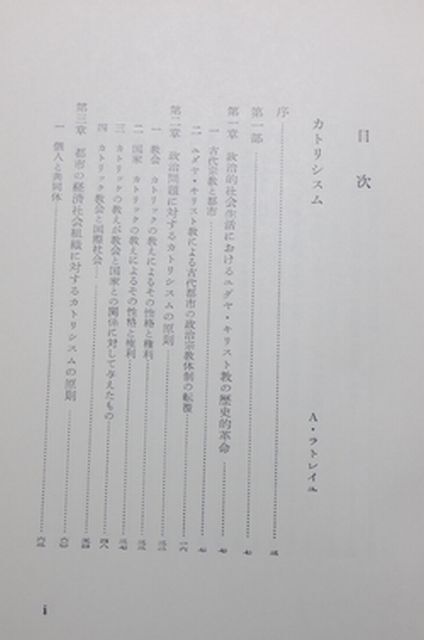 目次
カトリシスム
A・ラトレイユ
序
第一部
第一章 政治的社会生活におけるユダヤ・キリスト教の歴史的革命
一 古代宗教と都市
二 ユダヤ・キリスト教による古代都市の政治宗教体制の転覆
第二章 政治問題に対するカトリシスムの原則
一 教会 カトリックの教えによるその性格と権利
二 国家 カトリックの教えによるその性格と権利
三 カトリックの教えが教会と国家との関係に対して与えたもの
四 カトリック教会と国際社会
第三章 都市の経済社会組織に対するカトリシスムの原則
一 個人と共同体
i